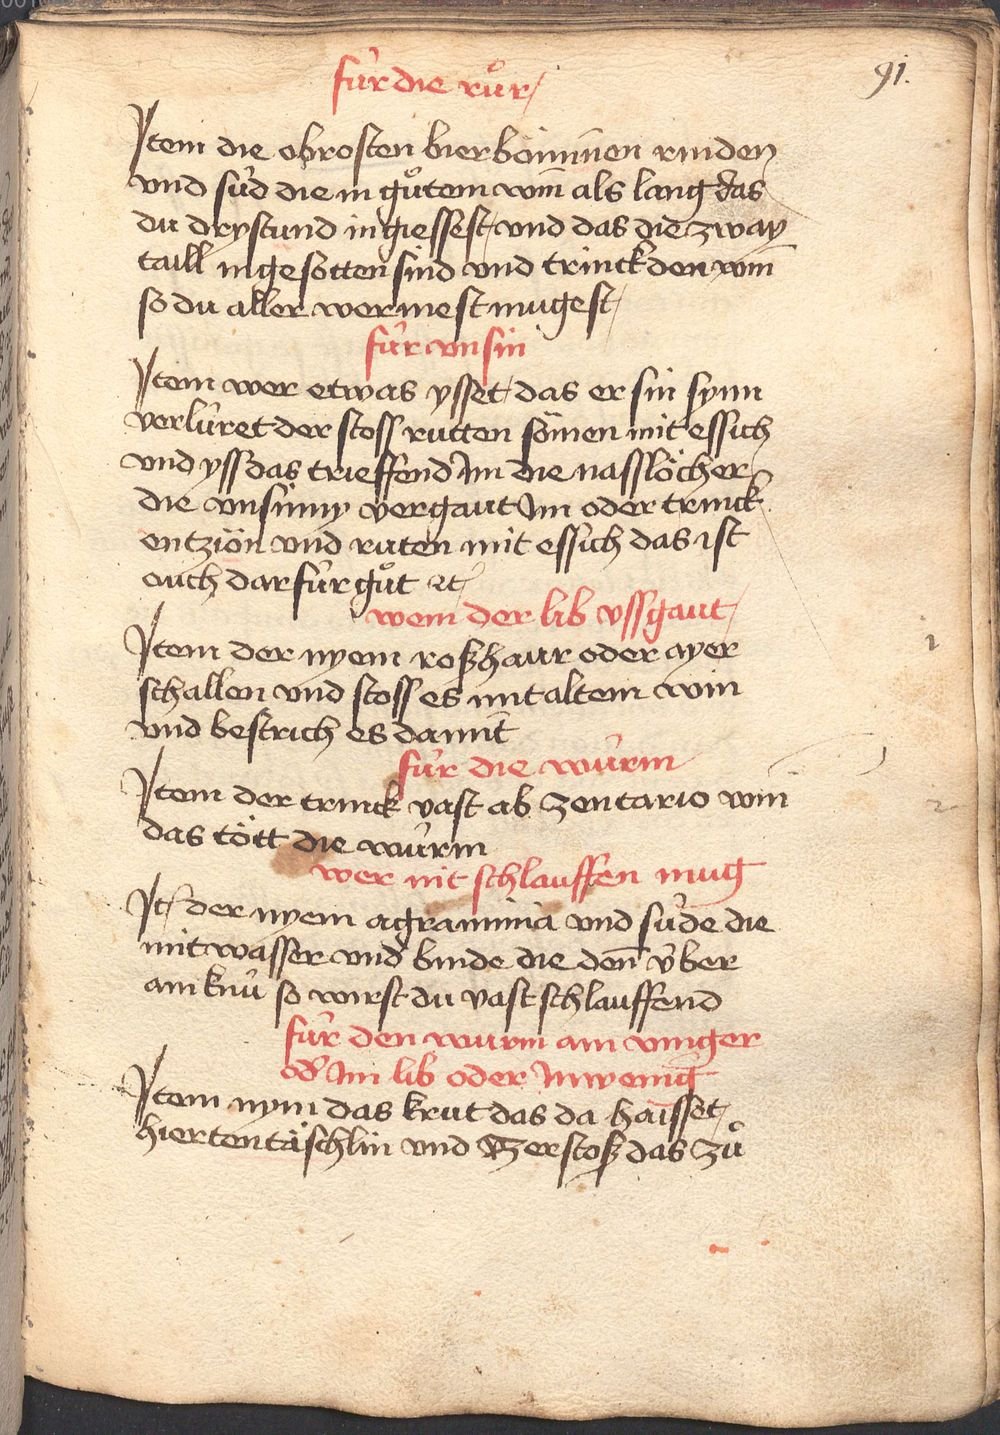 91.
für die růr
Item die obrosten bierbömm̄en rinden
vnd süd die in gůtem win̄ als lang das
du drystund in giessest vnd das die zway
taill ingesotten sind vnd trinck den win̄
so du aller wermest mugest
für vnsin
Item wer etwas ysset das er sin synn
verlüret der stoss rutten sömen mit essich
vnd yss das trieffend Im die nasslöcher
die vnsinny vergaut Im oder trinck
entziön vnd ruten mit essich das ist
ouch dar für gůt ꝛc
wem der lib vssgaut
Item der nyem roßhaur oder ayer
schallen vnd stoss es mit altem win
vnd bestrich es damit
für die würm
Item der trinck vast ab zentario win̄
das tött die würm
wer nit schlauffen mug
It der nyem agraminia vnd süde die
mit wasser vnd binde die den̄ v̈ber
ain knü so wirst du vast schlauffend
für den wurm am vinger
od Im lib oder Inwenig
Item nym das krut das da haisset
hiertentäschlin vnd zerstoß das zů
1
2